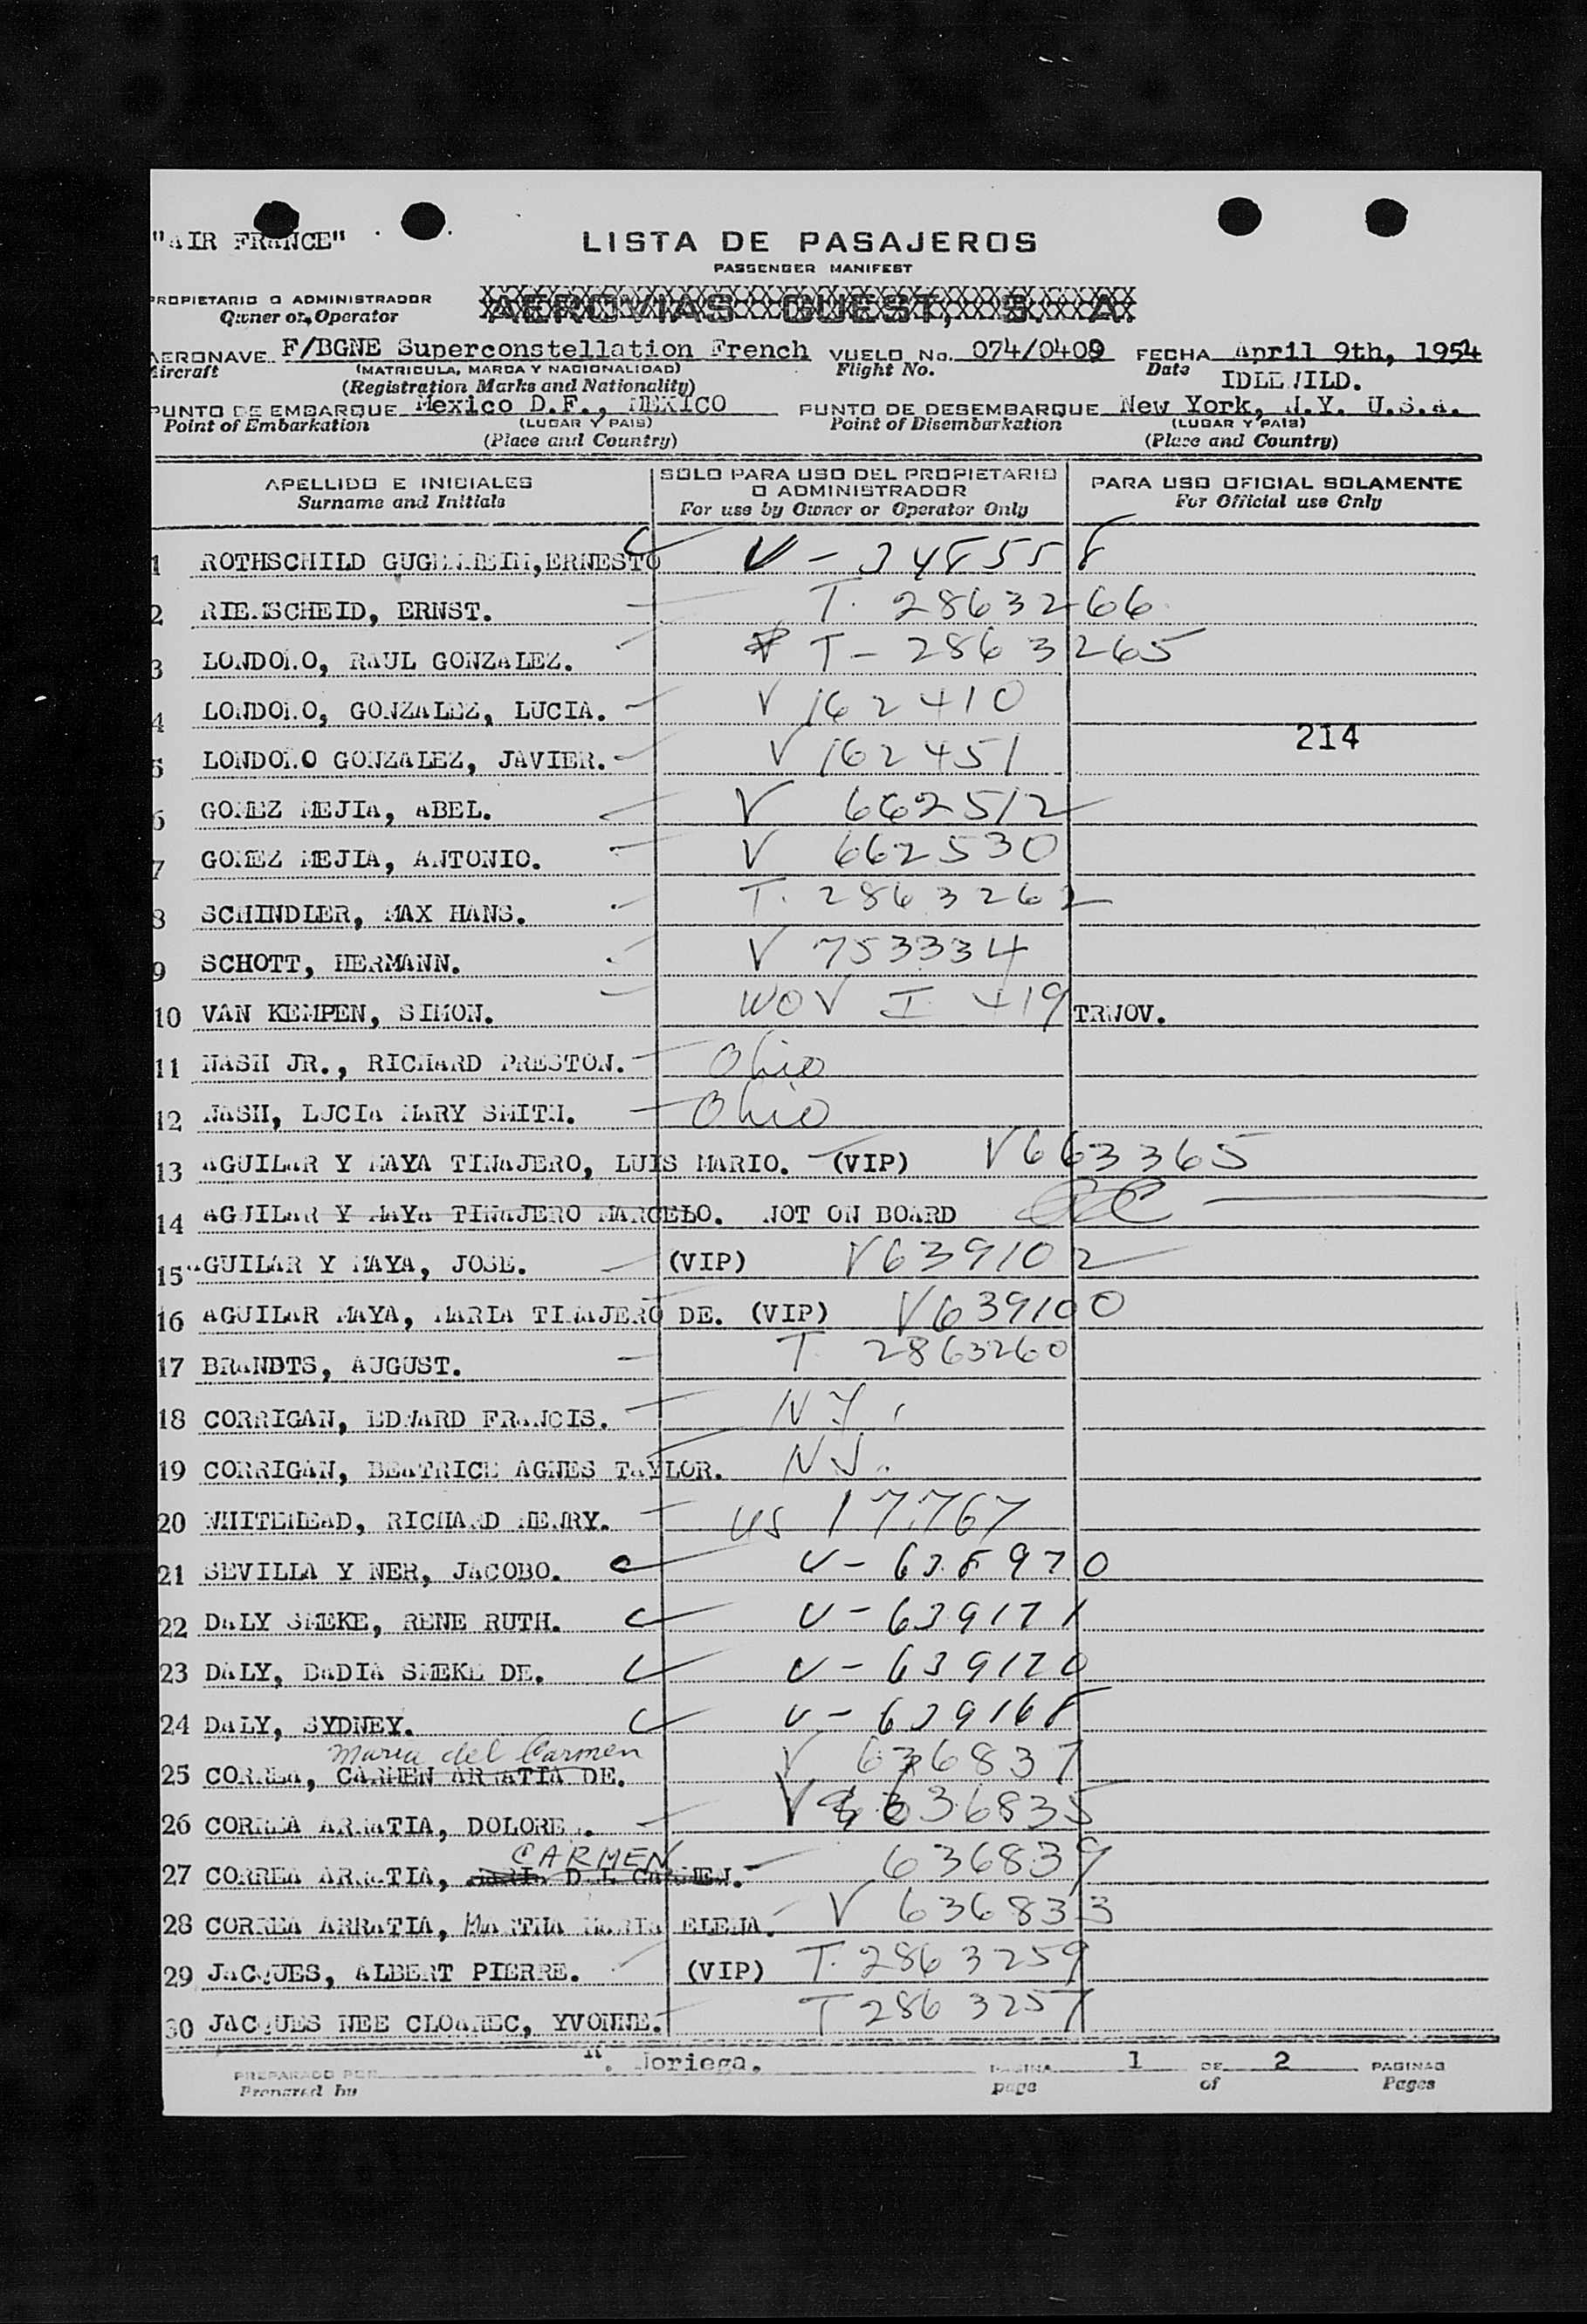 "AIR FRANCE"
LISTA DE PASAJEROS
PASSENGER MANIFEST
PROPIETARIO O ADMINISTRADOR
Owner or Operator
AEROVIAS GUEST, S. A.
AERONAVE F/BGNE Superconstellation French VUELO No. 074/0409 FECHA April 9th, 1954
Aircraft (MATRICULA, MARCA Y NACIONALIDAD) Flight No. Date
(Registration Marks and Nationality) IDLEWILD.
PUNTO DE EMBARQUE Mexico D.F., MEXICO PUNTO DE DESEMBARQUE New York, N.Y. U.S.A.
Point of Embarkation (LUGAR Y PAIS) Point of Disembarkation (LUGAR Y PAIS)
(Place and Country) (Place and Country)
APELLIDO E INICIALES SOLO PARA USO DEL PROPIETARIO O ADMINISTRADOR PARA USO OFICIAL SOLAMENTE
Surname and Initials For use by Owner or Operator Only For Official use Only
1 ROTHSCHILD GUGENHEIM, ERNESTO V - 348558
2 RIEMSCHEID, ERNST. T. 2863266
3 LONDOÑO, RAUL GONZALEZ. T - 2863265
4 LONDOÑO, GONZALEZ, LUCIA. V 162410
214
5 LONDOÑO GONZALEZ, JAVIER. V 162451
6 GOMEZ MEJIA, ABEL. V 662512
7 GOMEZ MEJIA, ANTONIO. V 662530
8 SCHINDLER, MAX HANS. T. 2863262
9 SCHOTT, HERMANN. V 753334
10 VAN KEMPEN, SIMON. WOV I 419 TRWOV.
11 NASH JR., RICHARD PRESTON. Ohio
12 NASH, LUCIA MARY SMITH. Ohio
13 AGUILAR Y MAYA TINAJERO, LUIS MARIO. (VIP) V663365
14 AGUILAR Y MAYA TINAJERO MARCELO. NOT ON BOARD
15 AGUILAR Y MAYA, JOSE. (VIP) V639102
16 AGUILAR MAYA, MARIA TINAJERO DE. (VIP) V639100
17 BRANDTS, AUGUST. T. 2863260
18 CORRIGAN, EDWARD FRANCIS. NJ.
19 CORRIGAN, BEATRICE AGNES TAYLOR. NJ.
20 WHITEHEAD, RICHARD HENRY. US 17767
21 SEVILLA Y NER, JACOBO. V - 638970
22 DALY SMEKE, RENE RUTH. V - 639171
23 DALY, BADIA SMEKE DE. V - 639170
24 DALY, SYDNEY. V - 639168
Maria del Carmen
25 CORREA, CARMEN ARRATIA DE. V 636837
26 CORREA ARRATIA, DOLORES. V 636835
CARMEN
27 CORREA ARRATIA, MARIA DEL CARMEN. 636839
28 CORREA ARRATIA, MARTHA MARIA ELENA. V 636833
29 JACQUES, ALBERT PIERRE. (VIP) T. 2863259
30 JACQUES NEE CLOAREC, YVONNE. T 2863257
PREPARADO POR Noriega. PAGINA 1 DE 2 PAGINAS
Prepared by page of Pages